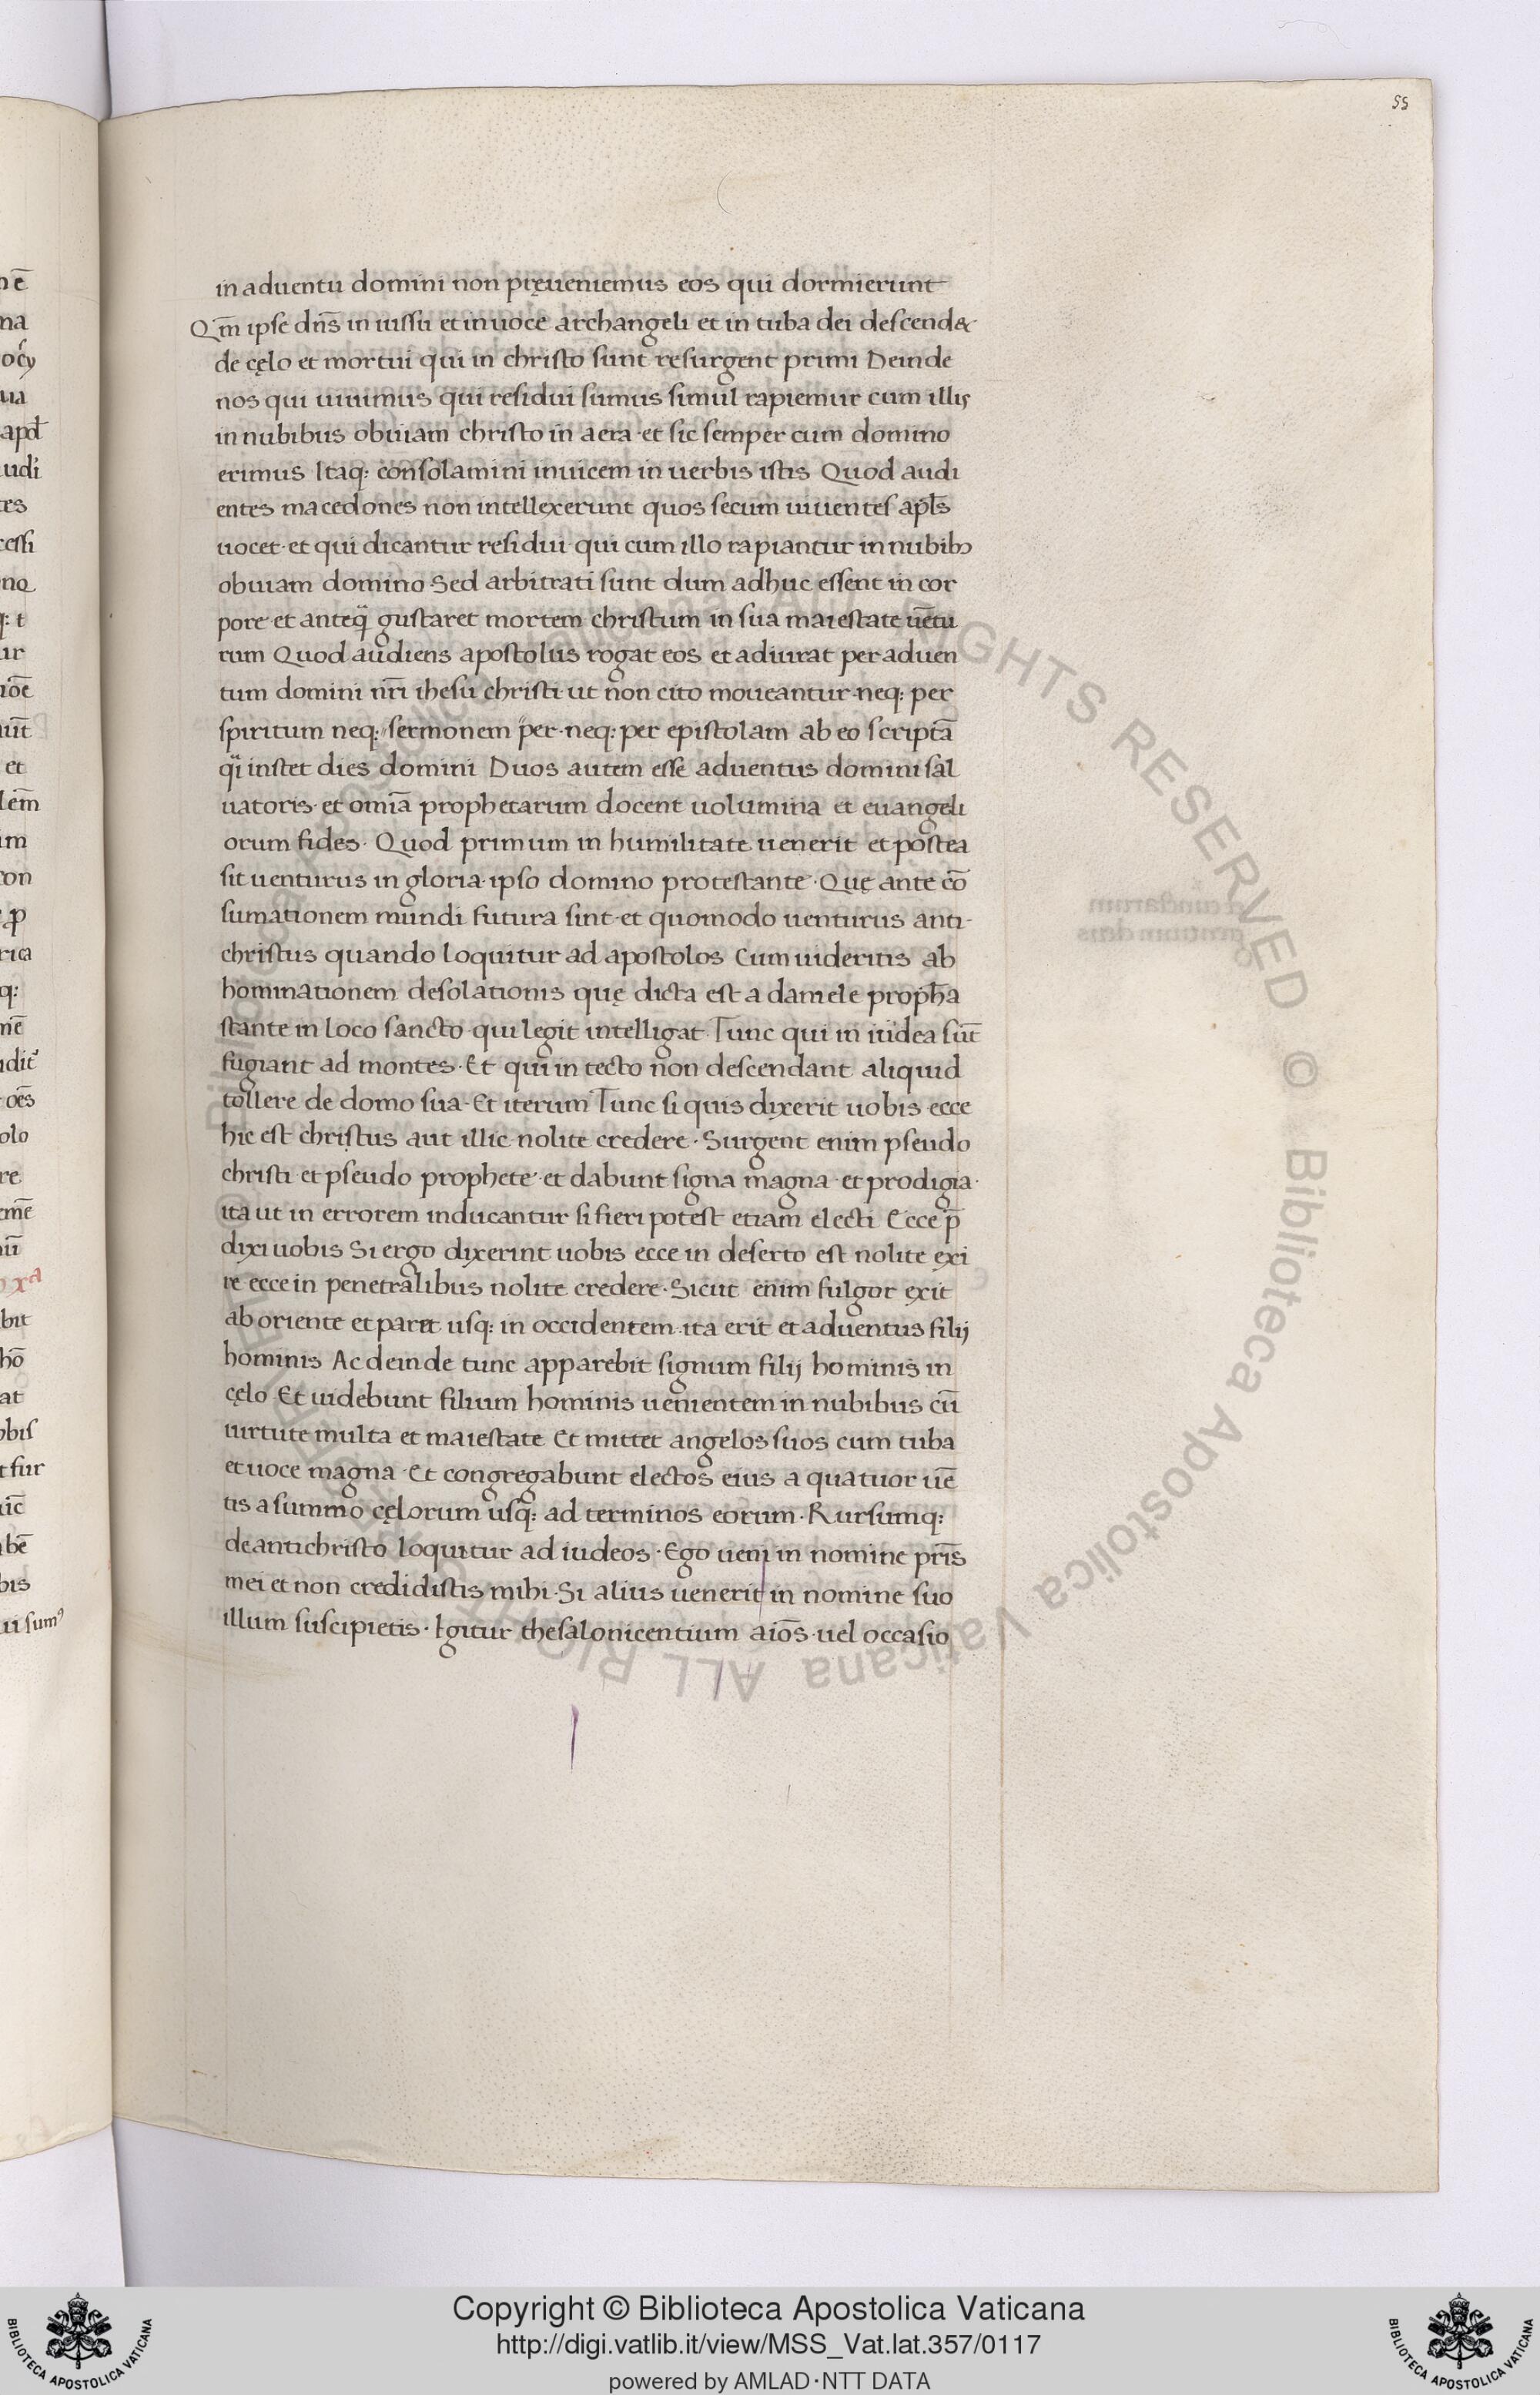 55
in aduentu domini non pręueniemus eos qui dormierunt
Qm̄ ipse dn̄s in iussu et in uoce archangeli et in tuba dei descend&
de cęlo et mortui qui in christo sunt resurgent primi Deinde
nos qui uiuimus qui residui sumus simul rapiemur cum illis
in nubibus obuiam christo in aera · et sic semper cum domino
erimus Itaq: consolamini inuicem in uerbis istis Quod audi
entes macedones non intellexerunt quos secum uiuentes apl̄s
uocet · et qui dicantur residui · qui cum illo rapiantur in nubibꝫ
obuiam domino · Sed arbitrati sunt dum adhuc essent in cor
pore · et anteq̄ gustaret mortem christum in sua maiestate uētu
rum Quod audiens apostolus rogat eos et adiurat per aduen
tum domini nr̄i ihesu christi · ut non cito moueantur · neq: per
spiritum neq: "sermonem "per · neq: per epistolam ab eo scriptā
q̄i instet dies domini Duos autem esse aduentus domini sal
uatoris · et omīa prophetarum docent uolumina et euangeli
orum fides · Quod primum in humilitate uenerit et postea
sit uenturus in gloria · ipso domino protestante · Quę ante cō
sumationem mundi futura sint · et quomodo uenturus anti-
christus quando loquitur ad apostolos Cum uideritis ab
hominationem desolationis quę dicta est a daniele proph̄a
stante in loco sancto · qui legit intelligat · Tunc qui in iudea sūt
fugiant ad montes · Et qui in tecto non descendant aliquid
tollere de domo sua · Et iterum Tunc si quis dixerit uobis ecce
hic est christus aut illic nolite credere · Surgent enim pseudo
christi · et pseudo prophete · et dabunt signa magna · et prodigia ·
ita ut in errorem inducantur si fieri potest etiam electi Ecce p̄
dixi uobis Si ergo dixerint uobis ecce in deserto est nolite exi
re ecce in penetralibus nolite credere · Sicut enim fulgor exit
ab oriente et paret usq: in occidentem · ita erit et aduentus filij
hominis Ac deinde tunc apparebit signum filij hominis in
cęlo Et uidebunt filium hominis uenientem in nubibus cū
uirtute multa et maiestate Et mittet angelos suos cum tuba
et uoce magna · Et congregabunt electos eius a quatuor uē
tis a summo cęlorum usq: ad terminos eorum · Rursumq:
de antichristo loquitur ad iudeos · Ego ueni in nomine pr̄is
mei et non credidistis mihi · Si alius uenerit in nomine suo
illum suscipietis · Igitur thesalonicentium aīos · uel occasio
© Biblioteca Apostolica Vaticana ALL RIGHTS RESERVED
Copyright © Biblioteca Apostolica Vaticana
http://digi.vatlib.it/view/MSS_Vat.lat.357/0117
powered by AMLAD·NTT DATA
BIBLIOTECA APOSTOLICA VATICANA
BIBLIOTECA APOSTOLICA VATICANA